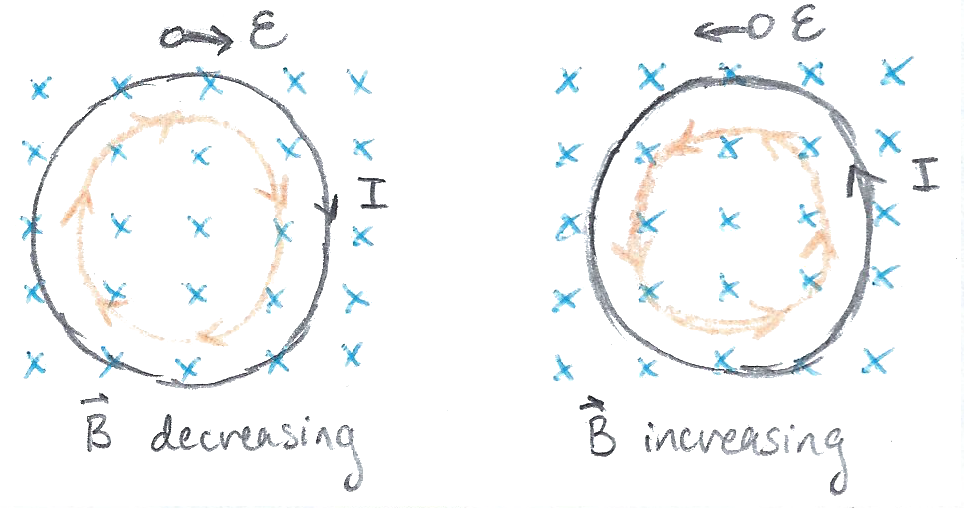 ℰ
I
B⃗ decreasing
ℰ
I
B⃗ increasing